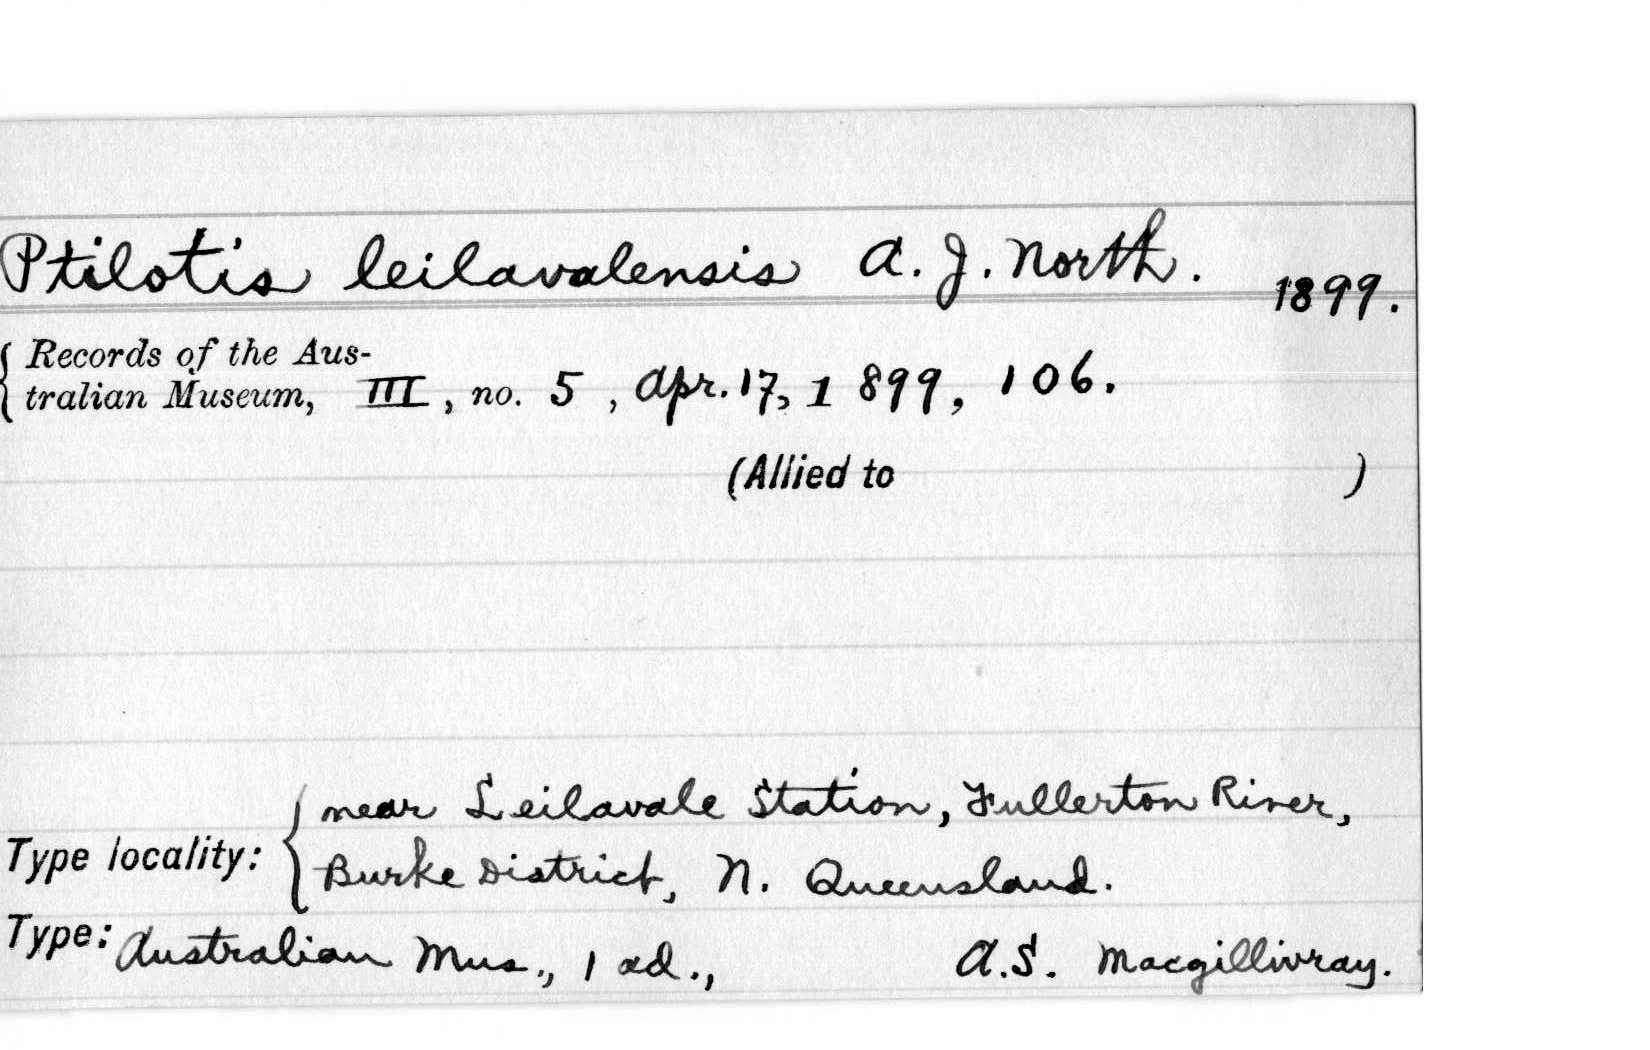 Ptilotis leilavalensis A. J. North. 1899.
{ Records of the Aus-
tralian Museum, III, no. 5, Apr. 17, 1899, 106.
(Allied to )
near Leilavale Station, Fullerton River,
Type locality: { Burke District, N. Queensland.
Type: Australian Mus., 1 ad., A.S. Macgillivray.